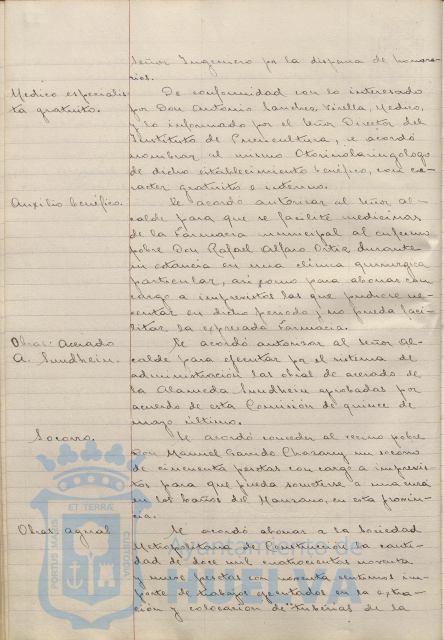 Señor Ingeniero por la dispensa de honora-
rios.
Medico especialis-
ta gratuito.
De conformidad con lo interesado
por Don Antonio Sanchez Virella, Medico,
y lo informado por el Señor Director del
Instituto de Puericultura, se acordó
nombrar al mismo Otorinolaringólogo
de dicho establecimiento benéfico, con ca-
racter gratuito e interino.
Auxilio benéfico.
Se acordó autorizar al Señor Al-
calde para que se facilite medicinas
de la Farmacia municipal al enfermo
pobre Don Rafael Alfaro Ortiz durante
su estancia en una clinica quirurgica
particular, asi como para abonar con
cargo a imprevistos las que pudiere ne-
cesitar en dicho periodo y no pueda faci-
litar la expresada Farmacia.
Obras: Acerado
A. Sundheim.
Se acordó autorizar al Señor Al-
calde para ejecutar por el sistema de
administracion las obras de acerado de
la Alameda Sundheim aprobadas por
acuerdo de esta Comisión de quince de
mayo último.
Socorro.
Se acordó conceder al vecino pobre
Don Manuel Garrido un socorro
de cincuenta pesetas con cargo a imprevis-
tos para que pueda someterse a una cura
en los baños del Manzano, en esta provin-
cia.
Obras: aguas.
Se acordó abonar a la Sociedad
Metropolitana de Construccion la canti-
dad de doce mil cuatrocientas noventa
y nueve pesetas con noventa centimos im-
porte de trabajos ejecutados en la extrac-
ción y colocacion de tuberias de la
ET TERRAE
PORTUS MARIS
CUSTODIA
Ayuntamiento de
HUELVA